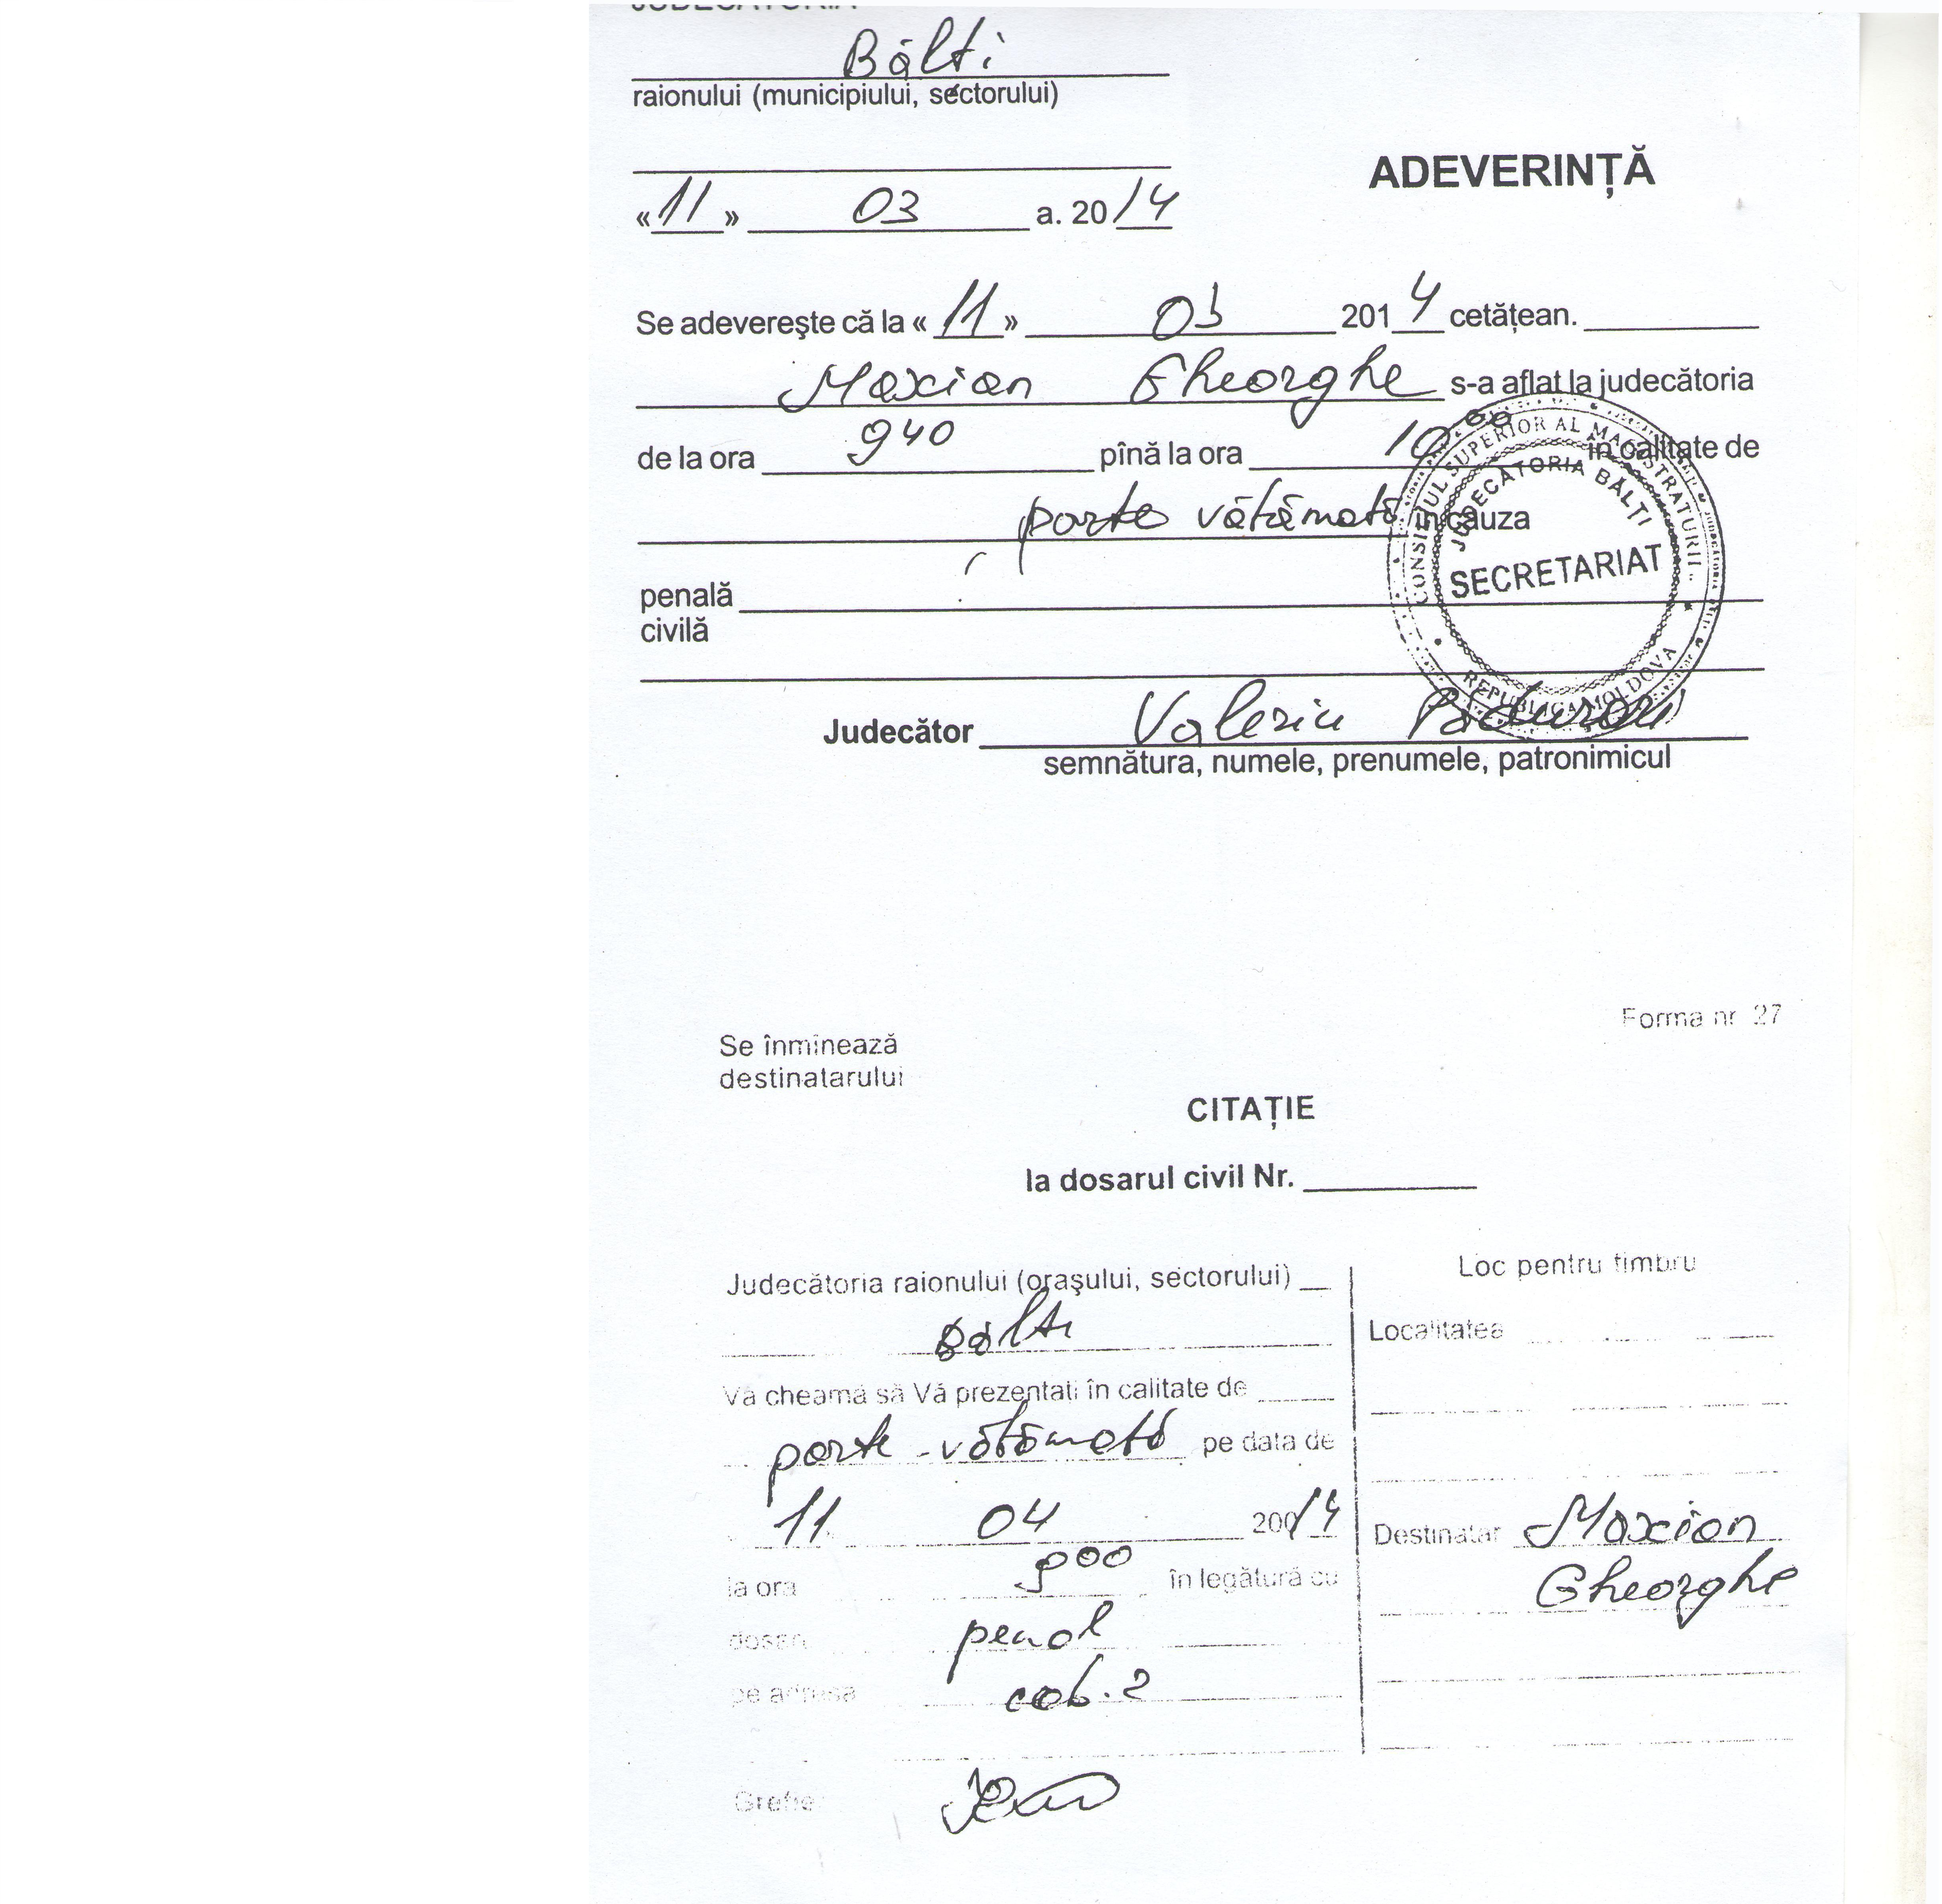 JUDECĂTORIA
Bălti
raionului (municipiului, sectorului)
ADEVERINȚĂ
«11» 03 a. 2014
Se adevereşte că la «11» 03 2014 cetățean.
Maxian Gheorghe s-a aflat la judecătoria
de la ora 940 pînă la ora 10 00 în calitate de
parte vătămată în cauza
penală
civilă
CONSILIUL SUPERIOR AL MAGISTRATURII
JUDECĂTORIA BĂLȚI
SECRETARIAT
REPUBLICA MOLDOVA
Judecător Valeriu Pădurari
semnătura, numele, prenumele, patronimicul
Forma nr 27
Se înmînează
destinatarului
CITAȚIE
la dosarul civil Nr.
Judecătoria raionului (oraşului, sectorului)
Bălti
Vă cheamă să Vă prezentați în calitate de
parte vătămată pe data de
11 04 20014
la ora 900 în legătură cu
dosar penal
pe adresa cab. 2
Grefier
Loc pentru timbru
Localitatea
Destinatar Maxian
Gheorghe